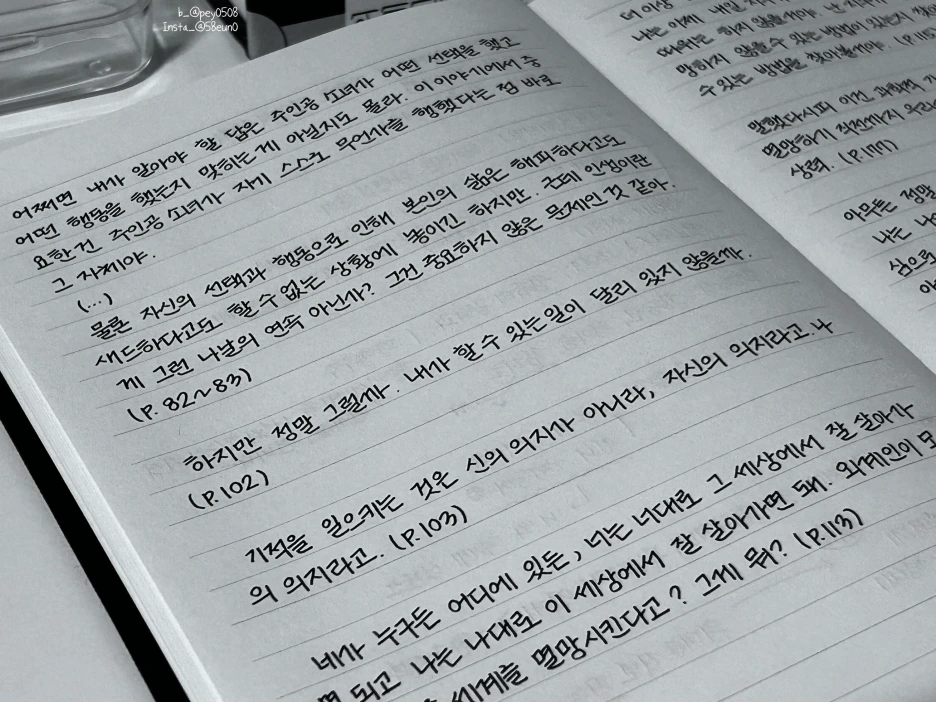 b_@pey0508
Insta_@58eun0
어쩌면 내가 알아야 할 답은 주인공 소녀가 어떤 선택을 했고
어떤 행동을 했는지 맞히는 게 아닐지도 몰라. 이 이야기에서 중
요한 건 주인공 소녀가 자기 스스로 무언가를 행했다는 점 바로
그 자체야.
(...)
물론 자신의 선택과 행동으로 인해 본인의 삶은 해피하다고도
새드하다고도 할 수 없는 상황에 놓이긴 하지만. 근데 인생이란
게 그런 나날의 연속 아닌가? 그건 중요하지 않은 문제인 것 같아.
(P. 82~83)
하지만 정말 그럴까. 내가 할 수 있는 일이 달리 있지 않을까.
(P. 102)
기적을 일으키는 것은 신의 의지가 아니라, 자신의 의지라고. 나
의 의지라고. (P. 103)
네가 누구든 어디에 있든, 너는 너대로 그 세상에서 잘 살아가
면 되고 나는 나대로 이 세상에서 잘 살아가면 돼. 외계인이
세계를 멸망시킨다고? 그게 뭐? (P. 113)
더 이상
나는 이제 내일
하지 않을
망하지 않을 수 있는 방법이 있는지
수 있는 방법을 찾아볼
말했다시피 이건 과학적
멸망하기 직전까지 우리
상력. (P. 177)
아무튼 정말
나는